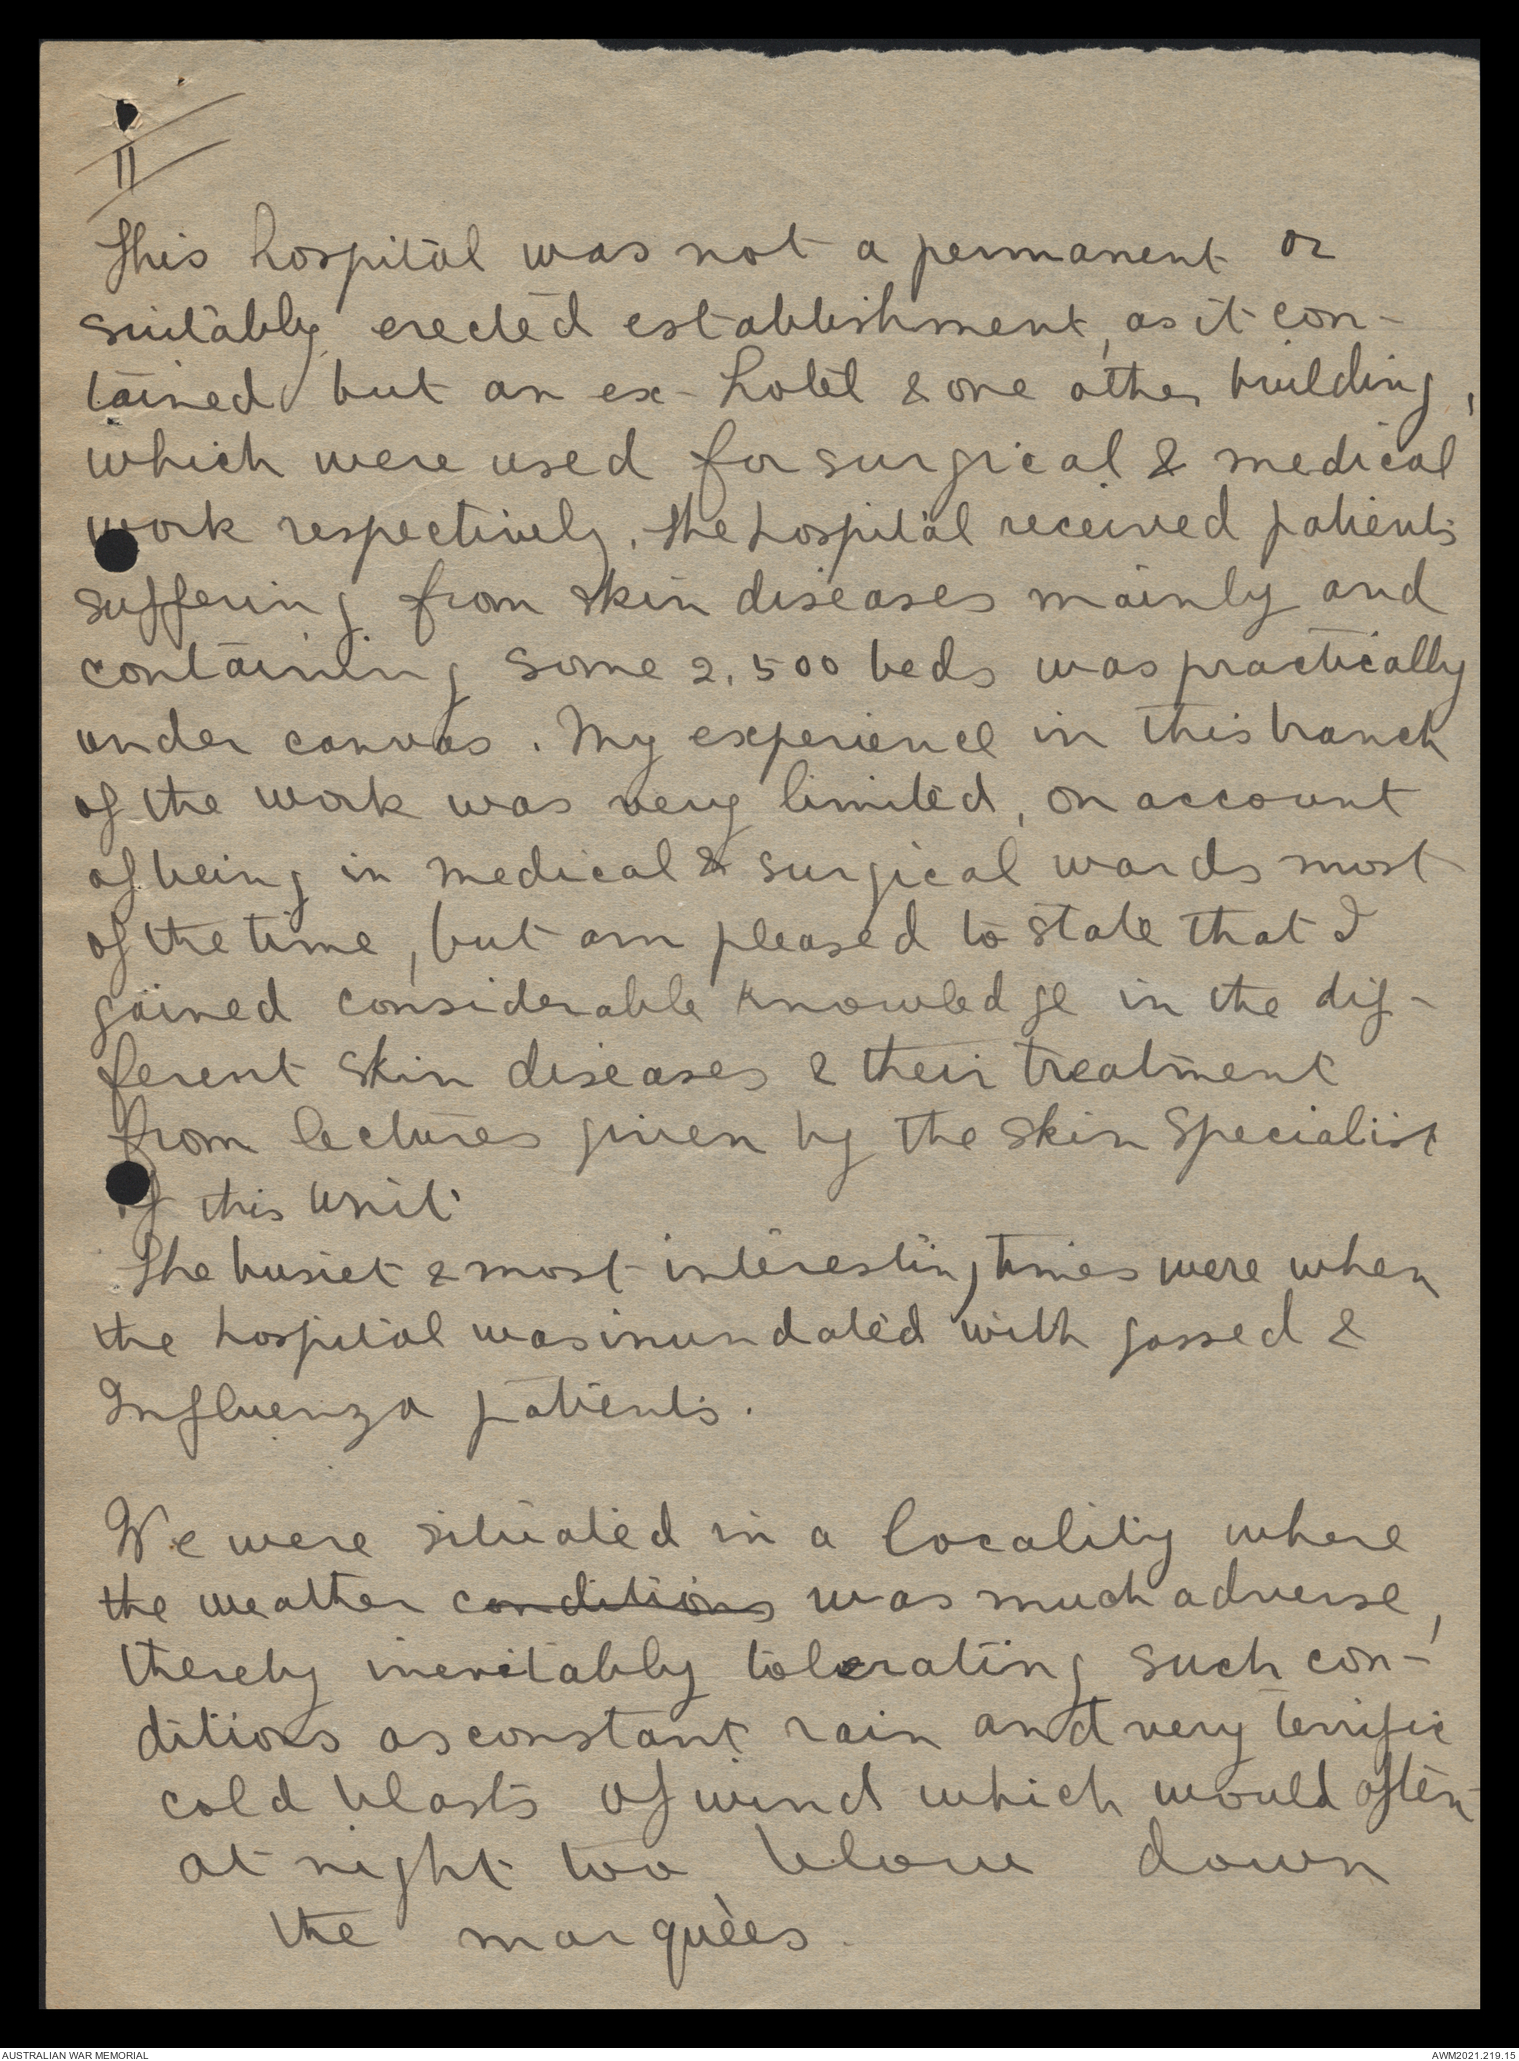 11
This hospital was not a permanent or
suitably erected establishment, as it con-
tained but an ex-hotel & one other building,
which were used for surgical & medical
work respectively. The hospital received patients
suffering from skin diseases mainly and
containing some 2,500 beds was practically
under canvas. My experience in this branch
of the work was very limited, on account
of being in medical & surgical wards most
of the time, but am pleased to state that I
gained considerable knowledge in the dif-
ferent skin diseases & their treatment
from lectures given by the skin specialist
of this unit.
The busiet & most interesting times were when
the hospital was inundated with gassed &
Influenza patients.
We were situated in a locality where
the weather conditions was much adverse,
thereby inevitably tolerating such con-
ditions as constant rain and very terrific
cold blasts of wind which would often
at night too blow down
the marquèes.
AUSTRALIAN WAR MEMORIAL
AWM2021.219.15